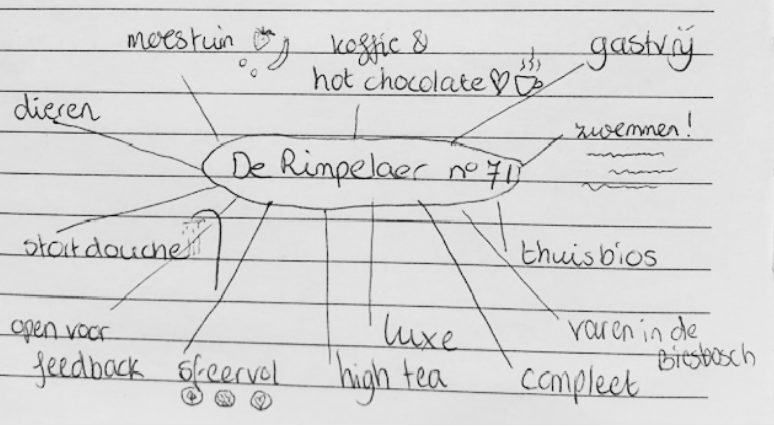 moestuin
koffie &
hot chocolate
gastvrij
dieren
zwemmen!
De Rimpelaer nº 71
stortdouche
thuisbios
open voor
feedback
sfeervol
luxe
high tea
varen in de
Biesbosch
compleet